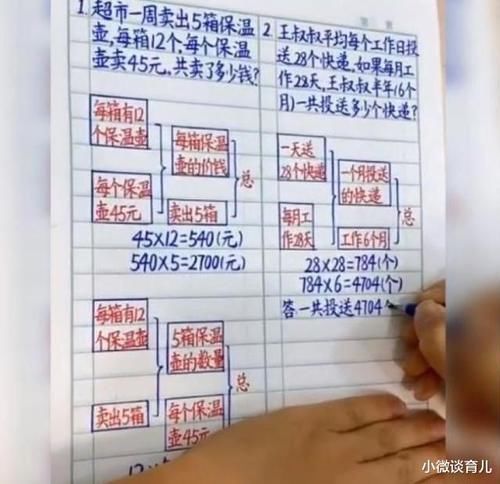 1. 超市一周卖出5箱保温
壶,每箱12个,每个保温
壶卖45元,共卖了多少钱?
每箱有12
个保温壶
每箱保温
壶的价钱
每个保温
壶45元
卖出5箱
总
45×12=540(元)
540×5=2700(元)
每箱有12
个保温壶
5箱保温
壶的数量
卖出5箱
每个保温
壶45元
总
2. 王叔叔平均每个工作日投
送28个快递,如果每月工
作28天,王叔叔半年(6个
月)一共投送多少个快递?
一天送
28个快递
一个月投送
的快递
每月工
作28天
工作6个月
总
28×28=784(个)
784×6=4704(个)
答一共投送4704
小微谈育儿